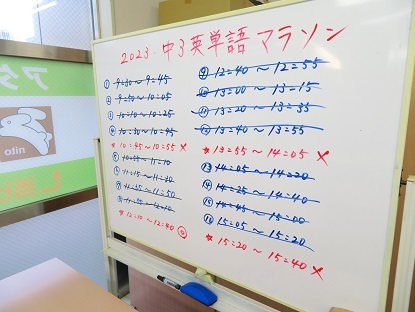 2023. 中3英単語マラソン
① 9:30～9:45
② 9:50～10:05
③ 10:10～10:25
④ 10:30～10:45
* 10:45～10:55 ×
⑤ 10:55～11:10
⑥ 11:15～11:30
⑦ 11:35～11:50
⑧ 11:55～12:10
* 12:10～12:40
⑨ 12:40～12:55
⑩ 13:00～13:15
⑪ 13:20～13:35
⑫ 13:40～13:55
* 13:55～14:05 ×
⑬ 14:05～14:20
⑭ 14:25～14:40
⑮ 14:45～15:00
⑯ 15:05～15:20
* 15:20～15:40 ×